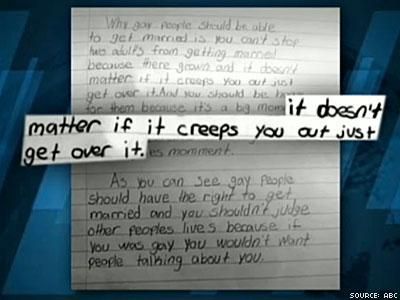 Why gay people should be able
to get married is you can't stop
two adults from getting married
because there grown and it doesn't
matter if it creeps you out just
get over it. And you should be
for them because it's a big mom
it doesn't
matter if it creeps you out just
get over it.
es momment.
As you can see gay people
should have the right to get
married and you shouldn't judge
other peoples lives because if
you was gay you wouldn't want
people talking about you.
SOURCE: ABC